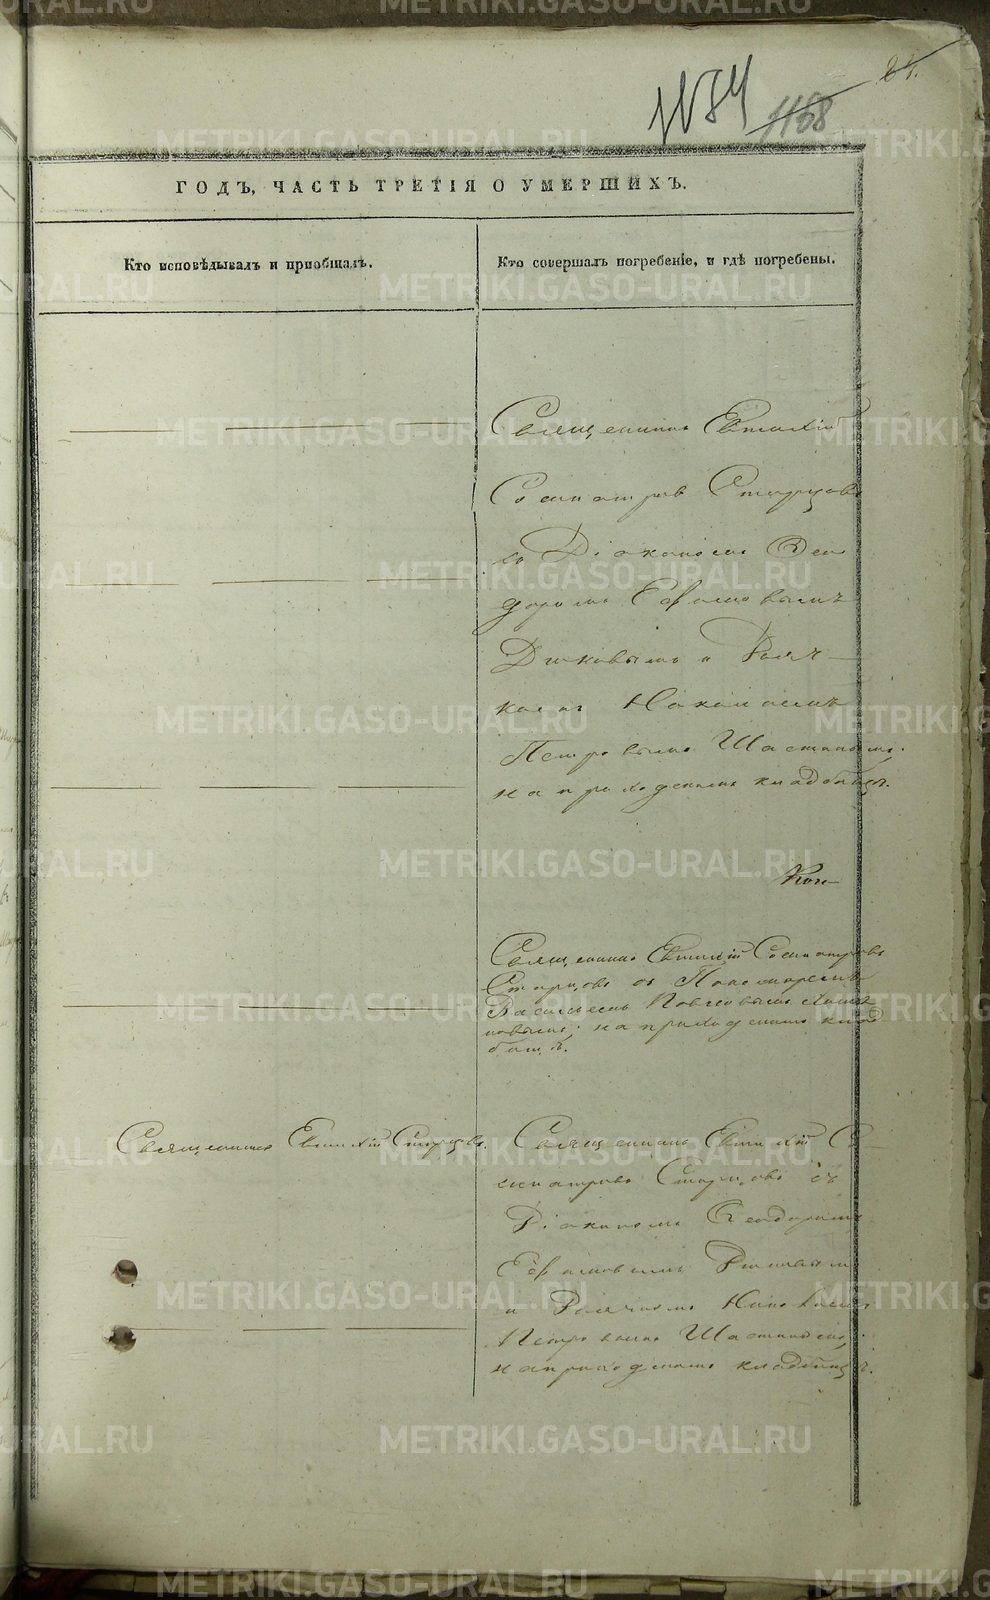 24.
1184 1168
ГОДЪ, ЧАСТЬ ТРЕТІЯ О УМЕРШИХЪ.
Кто исповѣдывалъ и пріобщалъ.
Кто совершалъ погребеніе, и гдѣ погребены.
Священникъ Евтихій
Сосипатровъ Старцовъ
съ Діакономъ Ѳео
доромъ Ефимовымъ
и Дьяч-
комъ Николаемъ
Петровымъ Шастинымъ,
на приходскомъ кладбищѣ.
Священникъ Евтихій Сосипатровъ
Старцовъ съ Пономаремъ
Василіемъ
на приходскомъ клад
бищѣ.
Священникъ Евтихій Старцовъ.
Священникъ Евтихій Со
сипатровъ Старцовъ съ
Діакономъ Ѳеодоромъ
Ефимовымъ
и Дьячкомъ Николаемъ
Петровымъ Шастинымъ,
на приходскомъ кладбищѣ.
METRIKI.GASO-URAL.RU